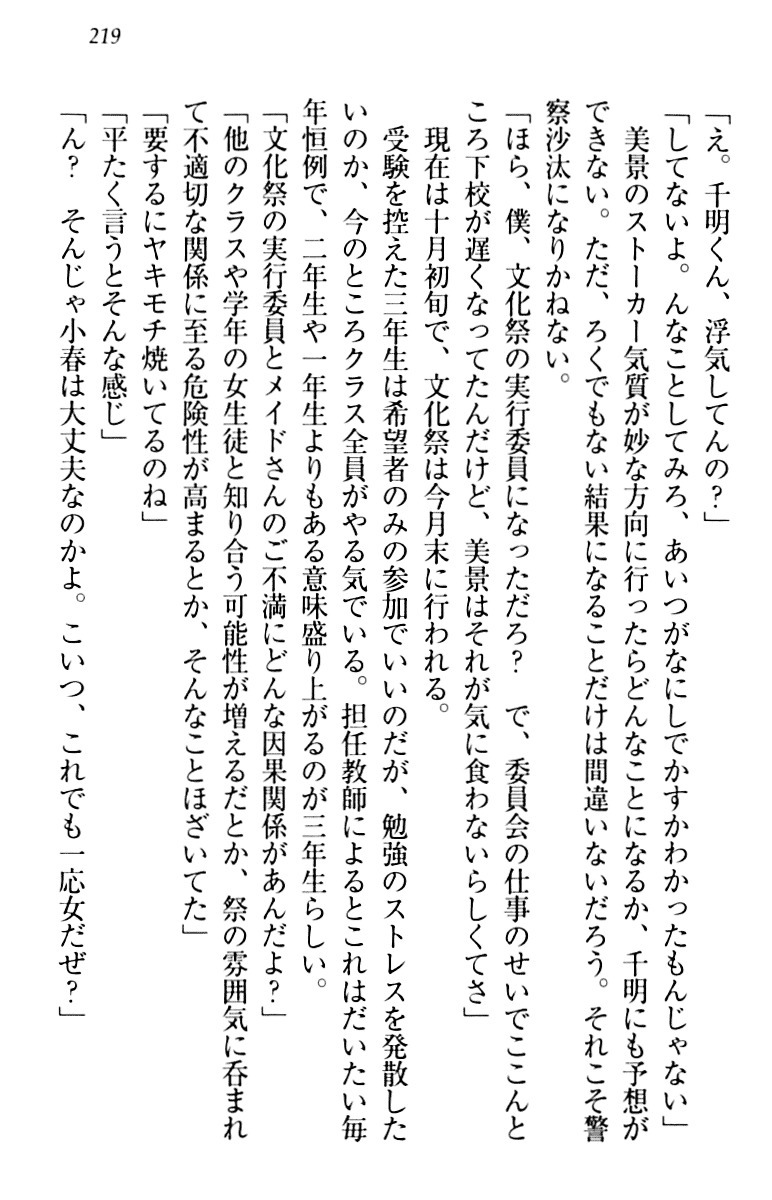 219
「え。千明くん、浮気してんの？」
「してないよ。んなことしてみろ、あいつがなにしでかすかわかったもんじゃない」
　美景のストーカー気質が妙な方向に行ったらどんなことになるか、千明にも予想が
できない。ただ、ろくでもない結果になることだけは間違いないだろう。それこそ警
察沙汰になりかねない。
「ほら、僕、文化祭の実行委員になっただろ？　で、委員会の仕事のせいでここんと
ころ下校が遅くなってたんだけど、美景はそれが気に食わないらしくてさ」
　現在は十月初旬で、文化祭は今月末に行われる。
　受験を控えた三年生は希望者のみの参加でいいのだが、勉強のストレスを発散した
いのか、今のところクラス全員がやる気でいる。担任教師によるとこれはだいたい毎
年恒例で、二年生や一年生よりもある意味盛り上がるのが三年生らしい。
「文化祭の実行委員とメイドさんのご不満にどんな因果関係があんだよ？」
「他のクラスや学年の女生徒と知り合う可能性が増えるだとか、祭の雰囲気に呑まれ
て不適切な関係に至る危険性が高まるとか、そんなことほざいてた」
「要するにヤキモチ焼いてるのね」
「平たく言うとそんな感じ」
「ん？　そんじゃ小春は大丈夫なのかよ。こいつ、これでも一応女だぜ？」